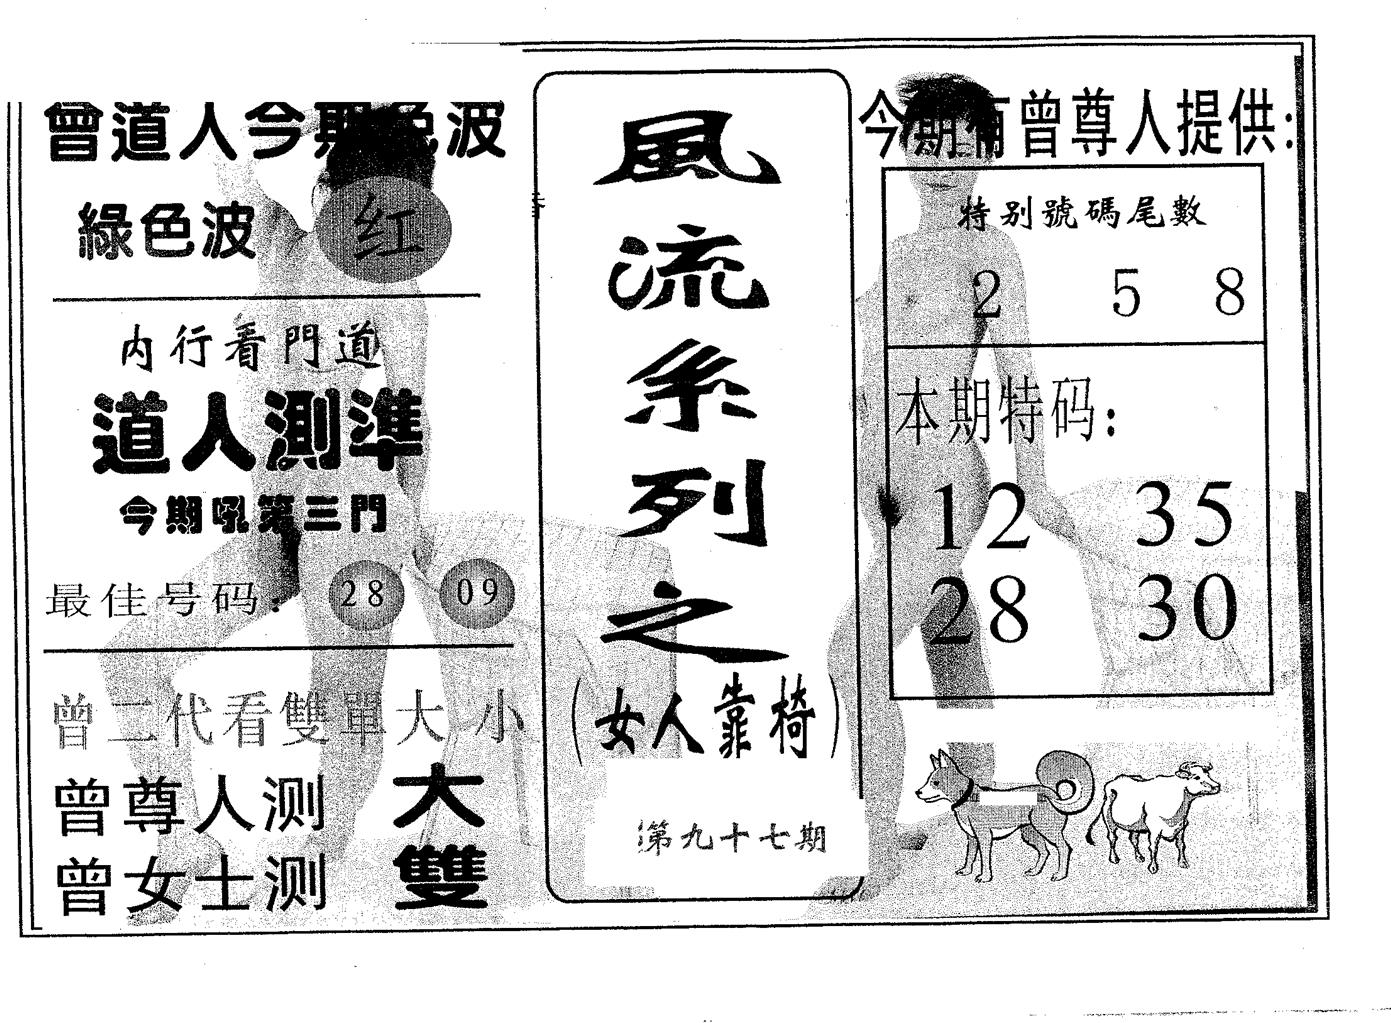 曾道人今期色波
綠色波 红
内行看門道
道人測準
今期吼第三門
最佳号码: 28 09
曾二代看雙單大小
曾尊人测 大
曾女士测 雙
風流系列之
(女人靠椅)
第九十七期
今期有曾尊人提供:
特别號碼尾數
2 5 8
本期特码:
12 35
28 30